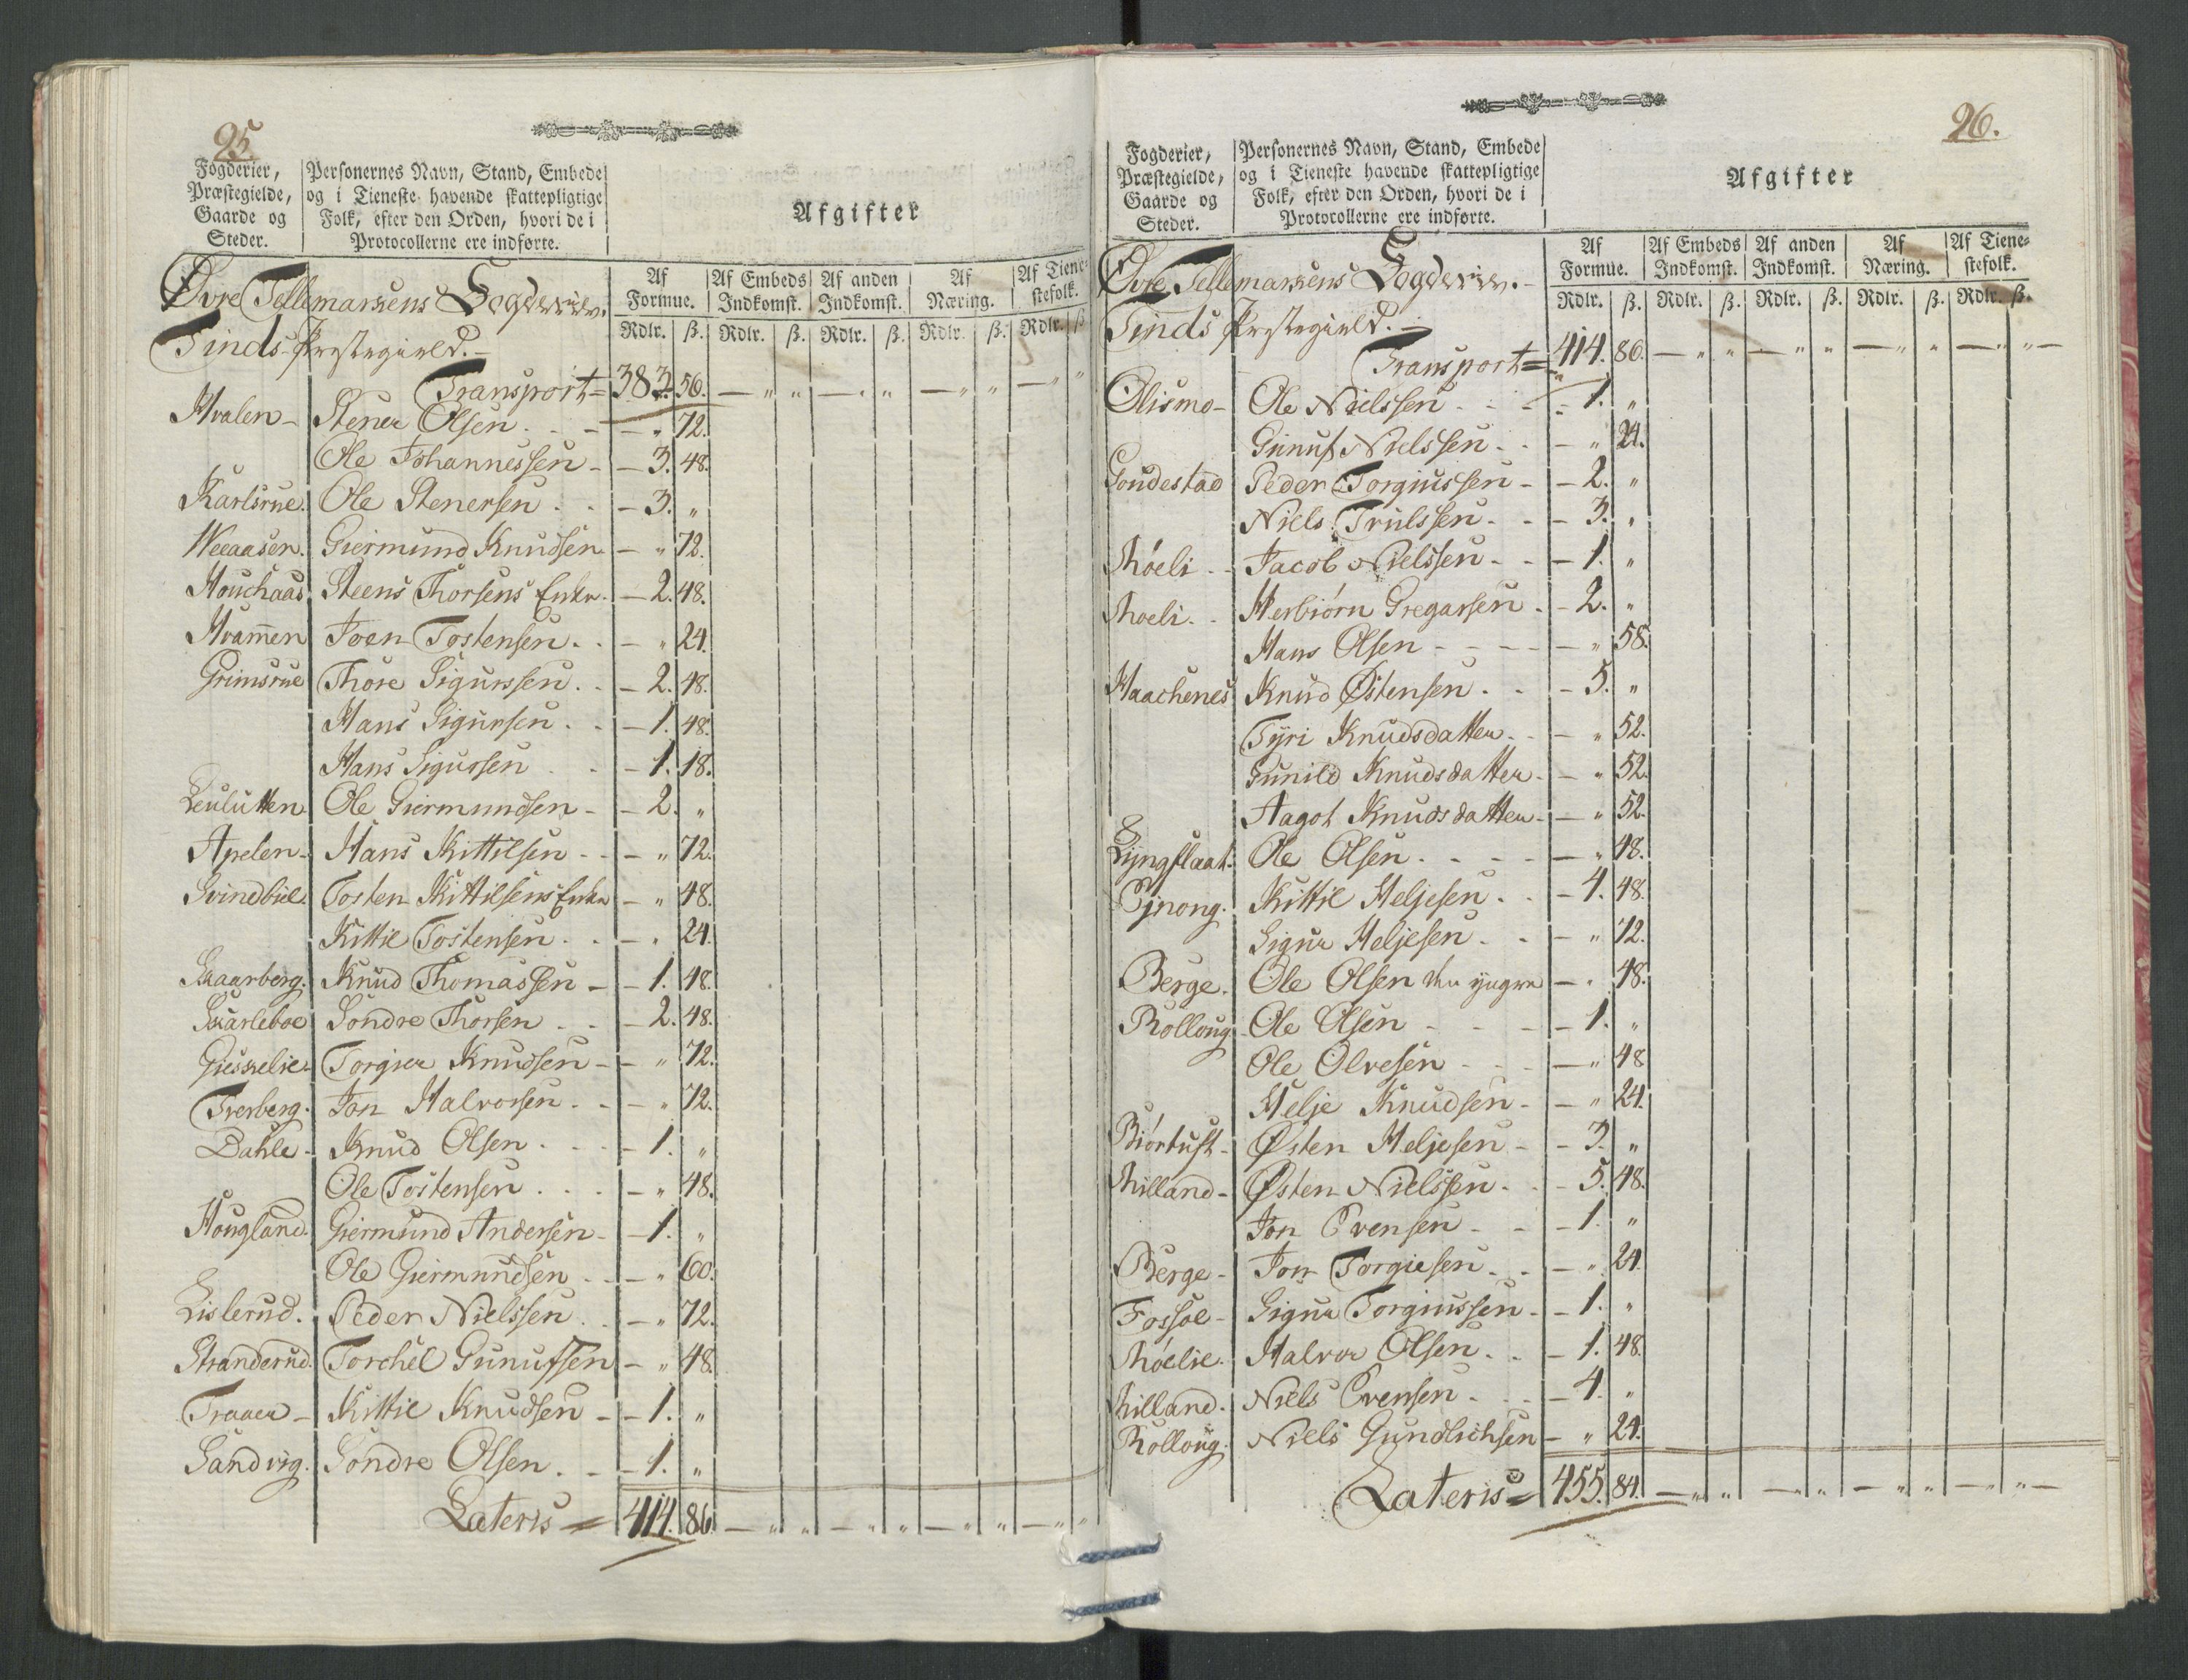 25.
Fogderier, Præstegielde, Gaarde og Steder.
Personernes Navn, Stand, Embede og i Tieneste havende skattepligtige Folk, efter den Orden, hvori de i Protocollerne ere indførte.
Afgifter
Af Formue. Af Embeds Indkomst. Af anden Indkomst. Af Næring. Af Tienestefolk.
Rdlr. ß. Rdlr. ß. Rdlr. ß. Rdlr. ß. Rdlr. ß
Øvre Tellemarkens Fogderie.
Tinds Præstegield.-
Transport = 383. 56. — " " — " " — " " — " "
Hvalen - Stener Olsen. - - — " 72.
Ole Johannessen - — 3. 48.
Karlsrue. Ole Stenersen . . — 3. "
Weeaasen. Giermund Knudsen — " 72.
Houchaas Steens Thorsens Enke. — 2. 48.
Hvam̄en Joen Tostensen. . — " 24.
Grimsrue Thore Sigurssen. . — 2. 48.
Hans Sigursen . . — 1. 48.
Hans Sigurssen . . — 1. 18.
Luulutten Ole Giermundsen - — 2. "
Apelen - Hans Kittilsen - - — " 72.
Svindbüel. Tosten Kittilsens Enke — " 48.
Kittil Tostensen. . — " 24.
Skaarberg. Knud Thomassen - — 1. 48.
Skarleboe Sondre Thorsen . . — 2. 48.
Giesskelie. Torgier Knudsen - — " 72.
Tverberg. Jon Halvorsen. . — " 72.
Dahle - Knud Olsen . . . — 1. "
Ole Tostensen . . . — " 48.
Hougland. Giermund Andersen - — 1. "
Ole Giermundsen . . — " 60.
Lislerud. Peder Nielssen . . — " 72.
Stranderud. Torchel Gunufsen — " 48.
Traaen - Kittil Knudsen - — 1. "
Sandvig. Sondre Olsen . . — 1. "
Lateris = 414. 86. — " " — " " — " " — " "
26.
Fogderier, Præstegielde, Gaarde og Steder.
Personernes Navn, Stand, Embede og i Tieneste havende skattepligtige Folk, efter den Orden, hvori de i Protocollerne ere indførte.
Afgifter
Af Formue. Af Embeds Indkomst. Af anden Indkomst. Af Næring. Af Tienestefolk.
Rdlr. ß. Rdlr. ß. Rdlr. ß. Rdlr. ß. Rdlr. ß.
Øvre Tellemarkens Fogderie. -
Tinds Præstegield. -
Transport = 414. 86. — " " — " " — " " — " " —
Olismo - Ole Nielssen . - - - 1. "
Gunuf Nielssen - . — " 24.
Goudestad Peder Torgiussen - — 2. "
Niels Trulssen. - — 3. "
Møeli - - Jacob Nielssen - - — 1. "
Moeli. - Herbiørn Gregarsen . - 2. "
Hans Olsen - - - - — " 58.
Haachenes Knud Østensen. . - 5. "
Tyri Knudsdatter. - — " 52.
Gunild Knudsdatter - — " 52.
Aagot Knudsdatter - — " 52.
Lyngflaat. Ole Olsen. - - - — " 48.
Ejnong. Kittil Heljesen . - 4. 48.
Sigur Heljesen. . — " 72.
Berge. Ole Olsen den yngre — " 48.
Rolloug - Ole Olsen - - - — 1. "
Ole Olvesen - - - — " 48
Helje Knudsen - — " 24.
Biørtuft - Østen Heljesen - — 3. "
Milland - Østen Nielssen. - - 5. 48.
Jon Evensen - - — 1. "
Berge - Jon Torgiesen. - — " 24.
Fossøe - Sigur Torgiussen - — 1. "
Møelie. Halvor Olsen. . — 1. 48.
Milland. Niels Evensen . . — 4. "
Rolloug. Niels Gundlichsen — " 24.
Lateris = 455. 84. — " " — " " — " " — " " —